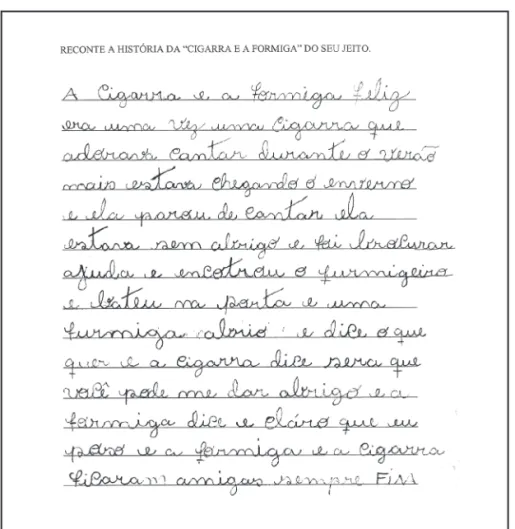 RECONTE A HISTÓRIA DA "CIGARRA E A FORMIGA" DO SEU JEITO.
A Cigarra e a formiga feliz
era uma vez uma Cigarra que
adorava Cantar durante o verão
mais estava chegando o enverno
e ela parou de cantar ela
estava sem abrigo e foi procurar
ajuda e encotrou o furmigeiro
e bateu na porta e uma
furmiga abrio e dice o que
quer e a Cigarra dice sera que
você pode me dar abrigo e a
formiga dice e cláro que eu
poso e a formiga e a Cigarra
ficaram amigas sempre FIM